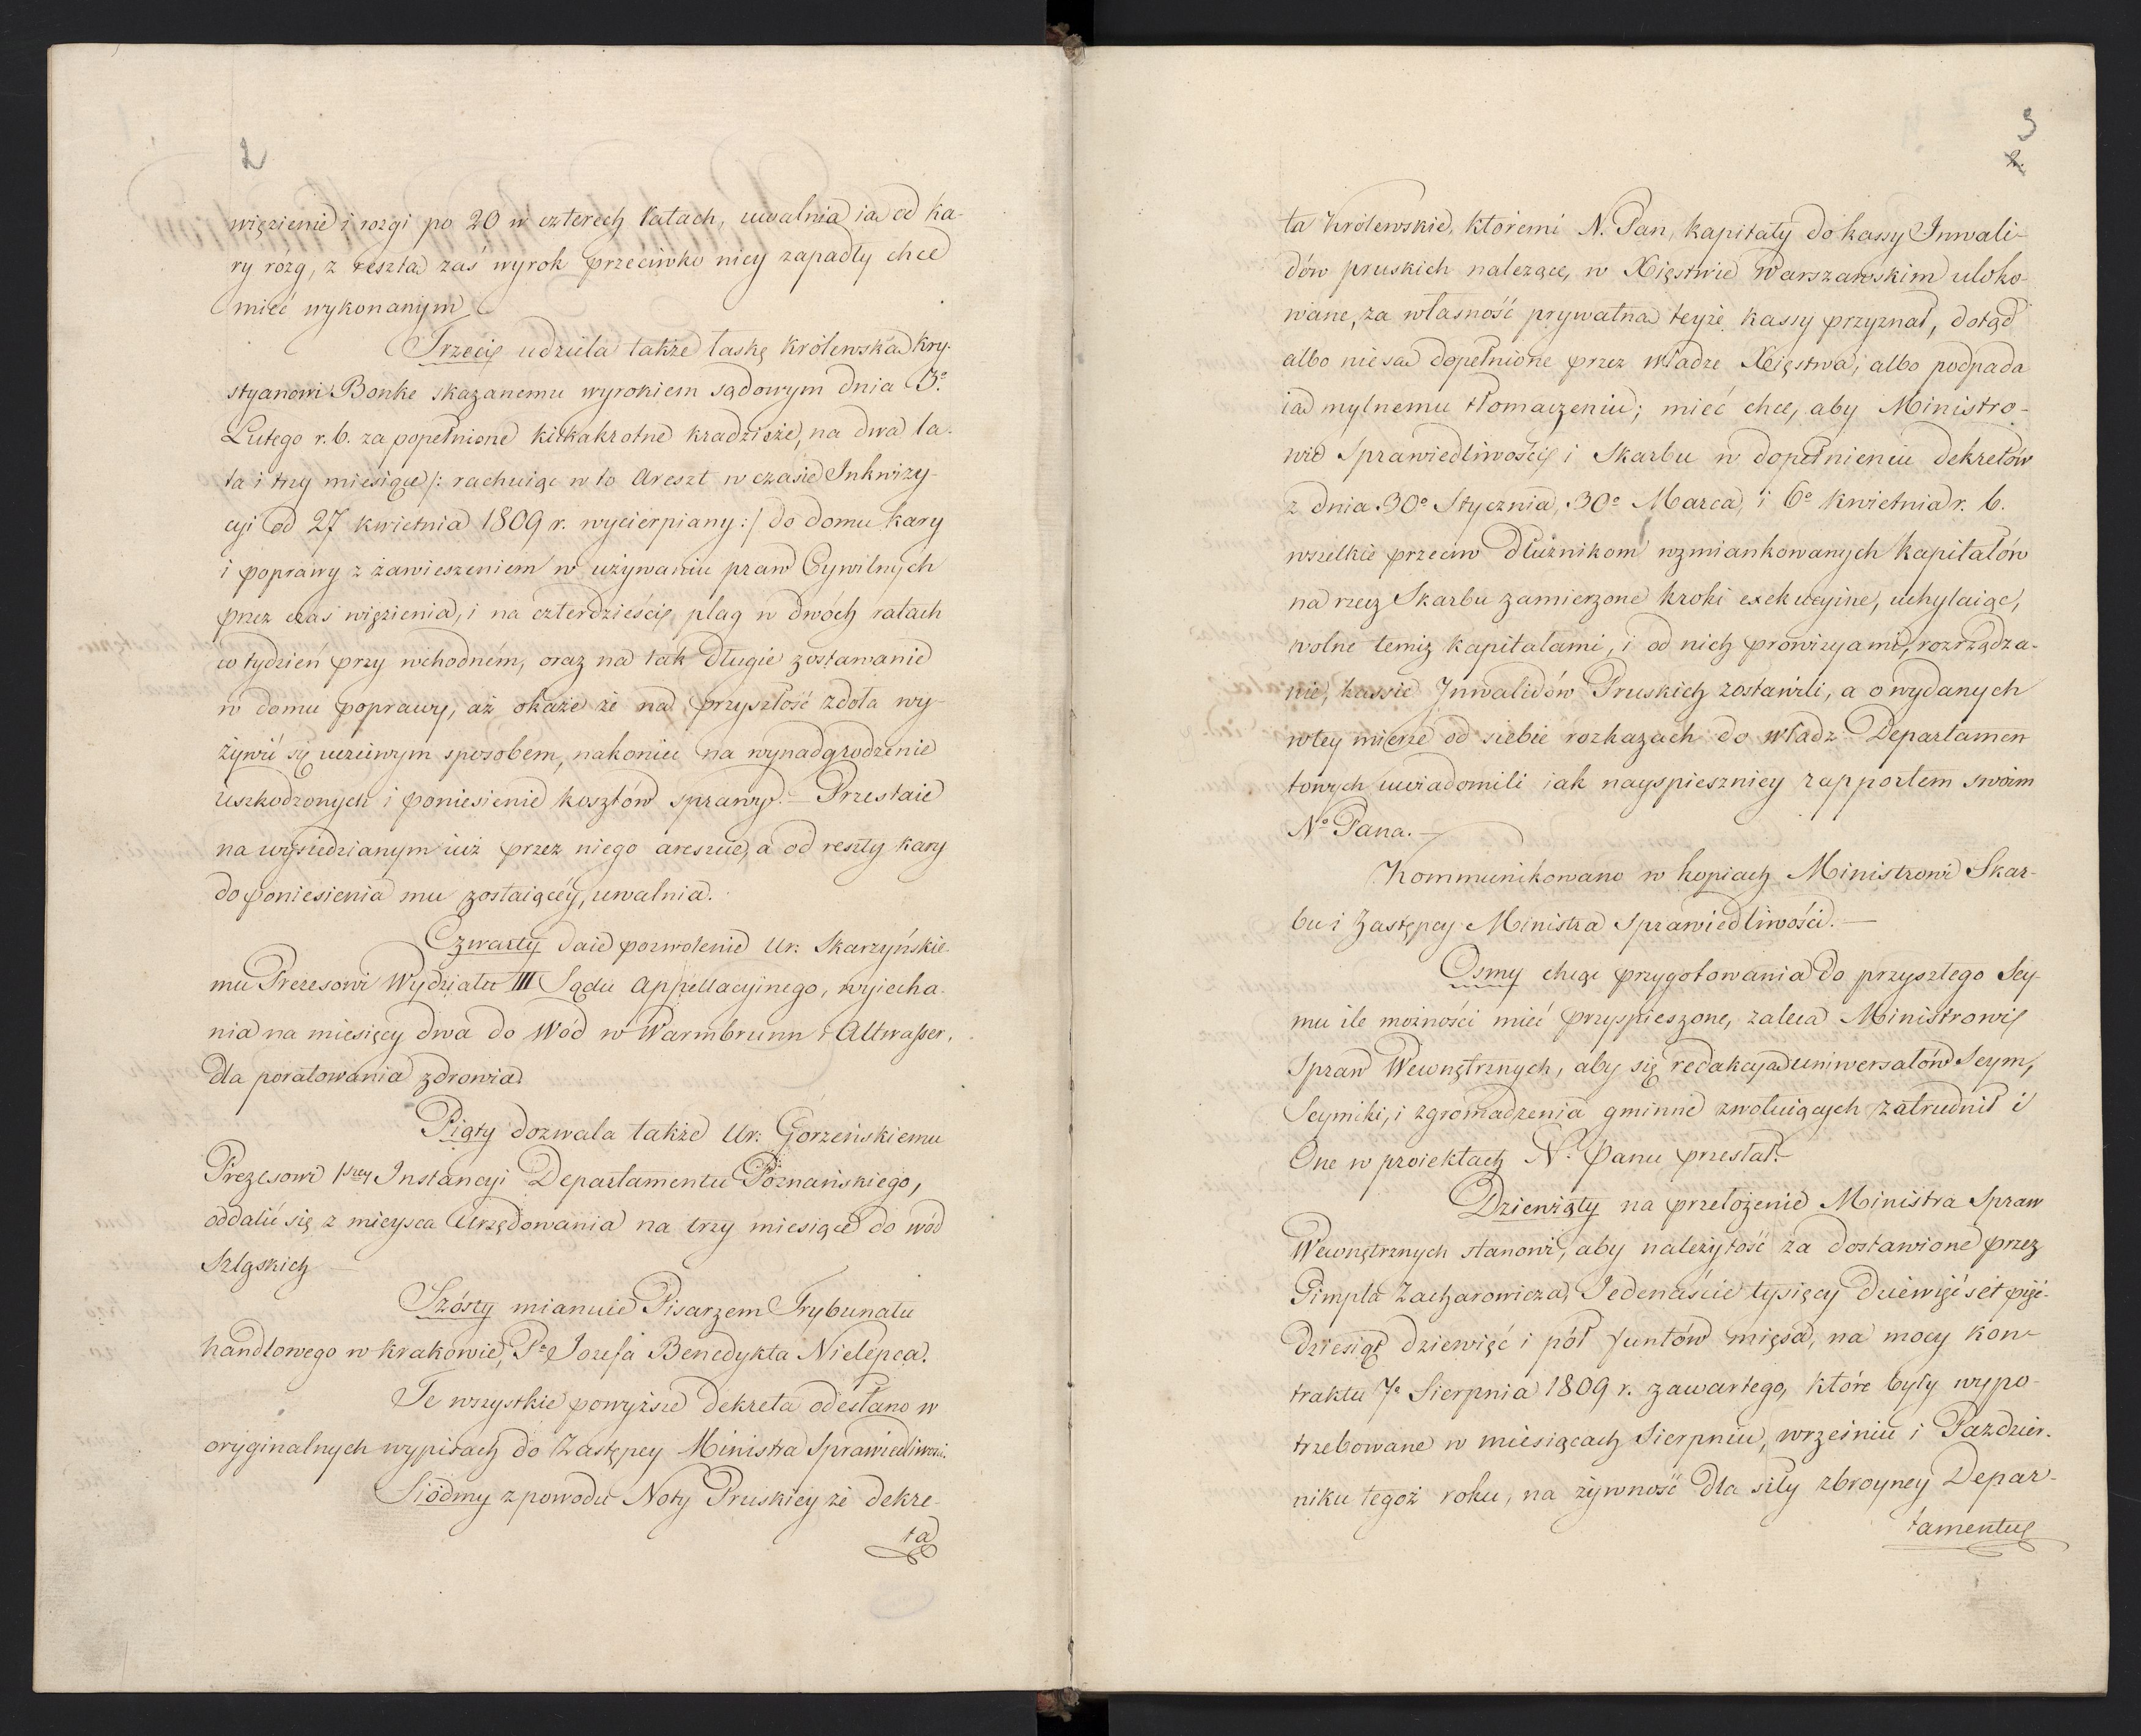 2
więzienie i rózgi po 20 w czterech łatach, uwalnia ią od ka-
ry rózg, z resztą zaś wyrok przeciwko niey zapadły chce
mieć wykonanym
Trzeci udziela także łaskę Królewską Kry-
styanowi Bonke skazanemu wyrokiem sądowym dnia 3º
Lutego r. b. za popełnione kilkakrotne kradzieże, na dwa la-
ta i trzy miesiące /: rachuiąc w to Areszt w czasie Inkwizy-
cyi od 27 kwietnia 1809 r. wycierpiany :/ do domu kary
i poprawy z zawieszeniem w używaniu praw Cywilnych
przez czas więzienia, i na czterdzieści plag w dwóch ratach
w tydzień przy wchodném, oraz na tak długie zostawanie
w domu poprawy, aż okaże że na przyszłość zdoła wy-
żywić się uczciwym sposobem, nakoniec na wynadgrodzenie
uszkodzonych i poniesienie kosztów sprawy. – Przestaie
na wysiedzianym iuż przez niego areszcie, a od reszty kary
do poniesienia mu zostaiącéy, uwalnia.
Czwarty daie pozwolenie Ur. Skarzyńskie-
mu Prezesowi Wydziału III Sądu Appellacyinego, wyiecha-
nia na miesięcy dwa do Wód w Warmbrunn i Altwaßer,
dla poratowania zdrowia
Piąty dozwala także Ur. Gorzeńskiemu
Prezesowi 1szey Instancyi Departamentu Poznańskiego,
oddalić się z mieysca Urzędowania na trzy miesiące do wód
Szląskich
Szósty mianuie Pisarzem Trybunału
handlowego w Krakowie, Pa Jozefa Benedykta Nielepca.
Te wszystkie powyższe dekreta odesłano w
oryginalnych wypisach do Zastępcy Ministra Sprawiedliwości.
Siódmy z powodu Noty Pruskiey że dekre-
ta
3
2.
ta Królewskie, któremi N. Pan, kapitały do kassy Inwali-
dów pruskich należące, w Xięstwie Warszawskim uloko-
wane, za własność prywatną teyże kassy przyznał, dotąd
albo nie są dopełnione przez władze Xięstwa, albo podpada
ią mylnemu tłomaczeniu; mieć chce, aby Ministro-
wie Sprawiedliwości i Skarbu w dopełnieniu dekretów
z dnia 30º Stycznia, 30º Marca, i 6º kwietnia r. b.
wszelkie przeciw dłużnikom wzmiankowanych kapitałów
na rzecz Skarbu zamierzone kroki exekucyine, uchylaiąc,
wolne temiż kapitałami, i od nich prowizyami, rozrządza-
nie, kassie Inwalidów Pruskich zostawili, a o wydanych
w tey mierze od siebie rozkazach do władz Departamen
towych uwiadomili iak nayspieszniey rapportem swoim
Nº Pana. –
Kommunikowano w kopiach Ministrowi Skar-
bu i Zastępcy Ministra Sprawiedliwości. –
Osmy chcąc przygotowania do przyszłego Sey-
mu ile możności mieć przyspieszone, zaleca Ministrowi
Spraw Wewnętrznych, aby się redakcyą uniwersałów Seym,
Seymiki, i zgromadzenia gminne zwołuiących zatrudnił i
One w proiektach N. Panu przesłał. –
Dziewiąty na przełożenie Ministra Spraw
Wewnętrznych stanowi, aby należytość za dostawione przez
Pimpla Zacharowicza, Jedenaście tysięcy dziewięćset pięć-
dziesiąt dziewięć i pół funtów mięsa, na mocy kon-
traktu 7º Sierpnia 1809 r. zawartego, które były wypo-
trzebowane w miesiącach Sierpniu, wrześniu i Paździer-
niku tegoż roku, na żywność dla siły zbroyney Depar-
tamentu